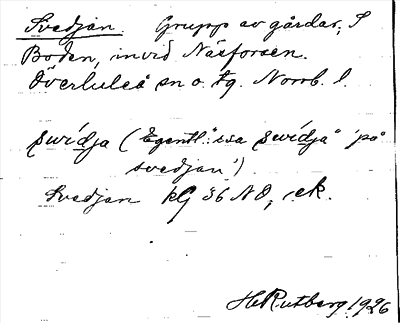 Svedjan Grupp av gårdar, i
Boden, invid Näsforsen.
Överluleå sn o. tg. Norrb. l.
swídja (Egentl. "isa swídja" 'på
svedjan')
Svedjan kG 36 NO, ek.
H. Rutberg 1926